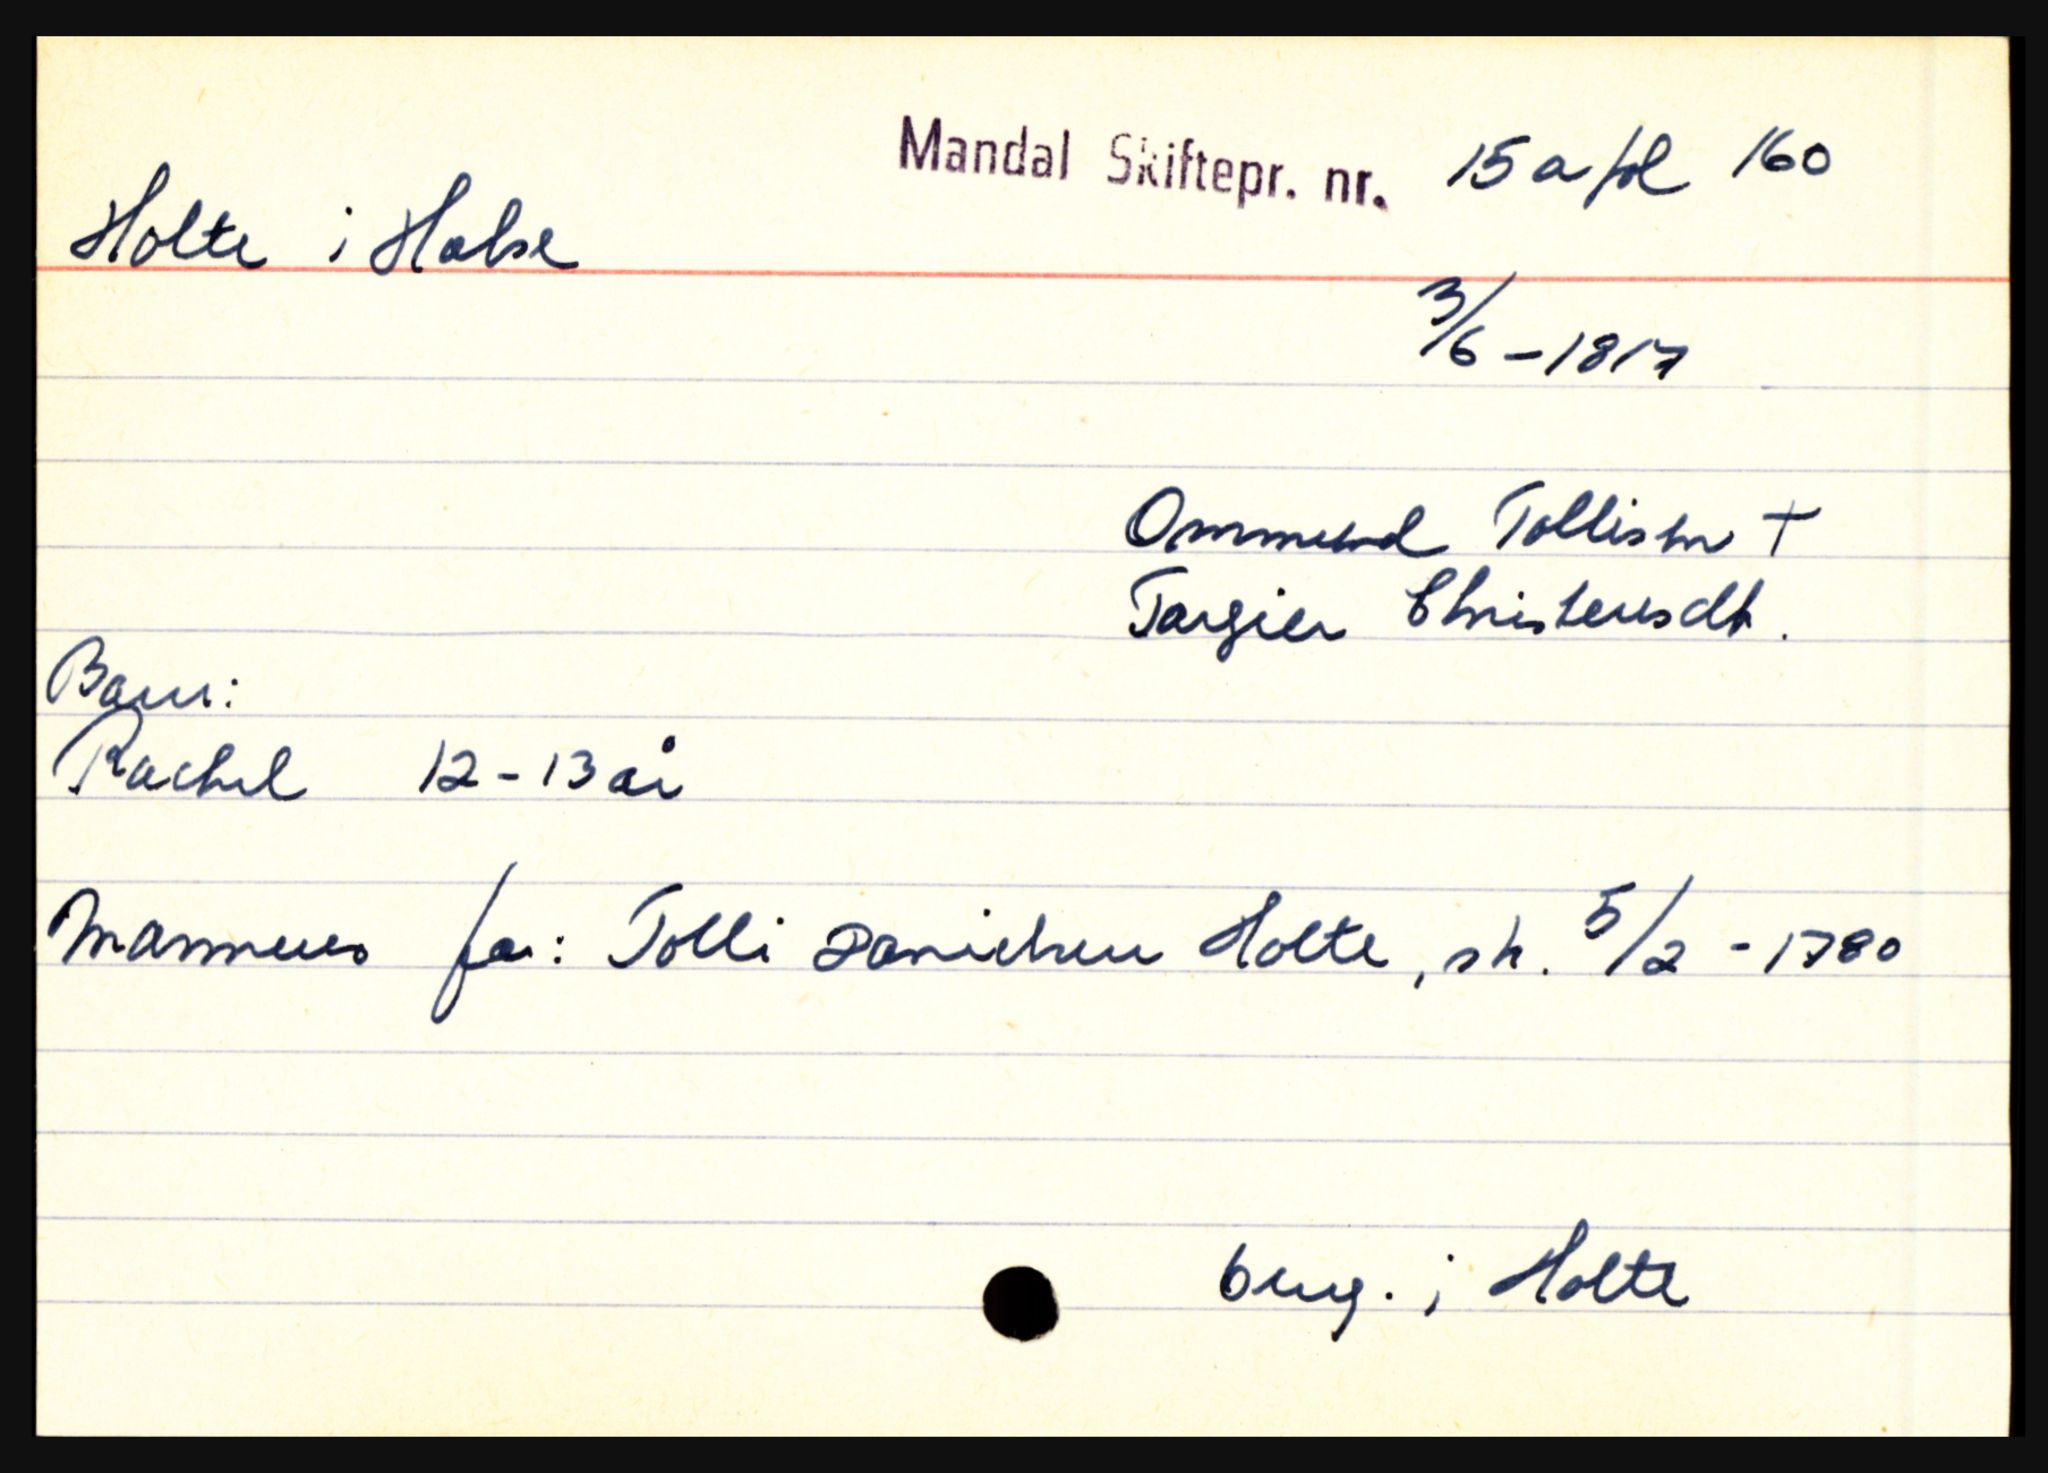 Mandal Skiftepr. nr. 15 a fol 160
Holte i Halse
3/6 - 1817
Ommund Tollisen +
Torgier Christensdt.
Barn:
Rachel 12 - 13 år
Mannens far: Tolli Danielsen Holte, sk. 5/2 - 1780
brug. i Holte